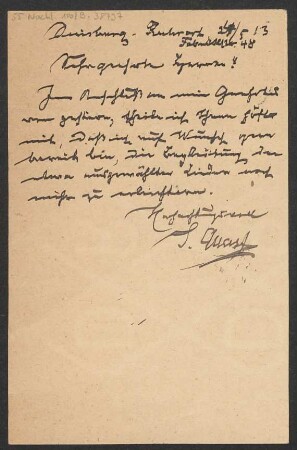 55 Nachl. 100/B, 38737
Duisburg-Ruhrort 29/5 13
Fabrikstr. 48
Sehr geehrte Herren!
Im Anschluß an mein Geehrtes
von gestern, teile ich Ihnen höfl.
mit, daß ich auf Wunsch gern
bereit bin, die Begleitung der
etwa ausgewählten Lieder noch
mehr zu erleichtern.
Hochachtungsvoll
Quast